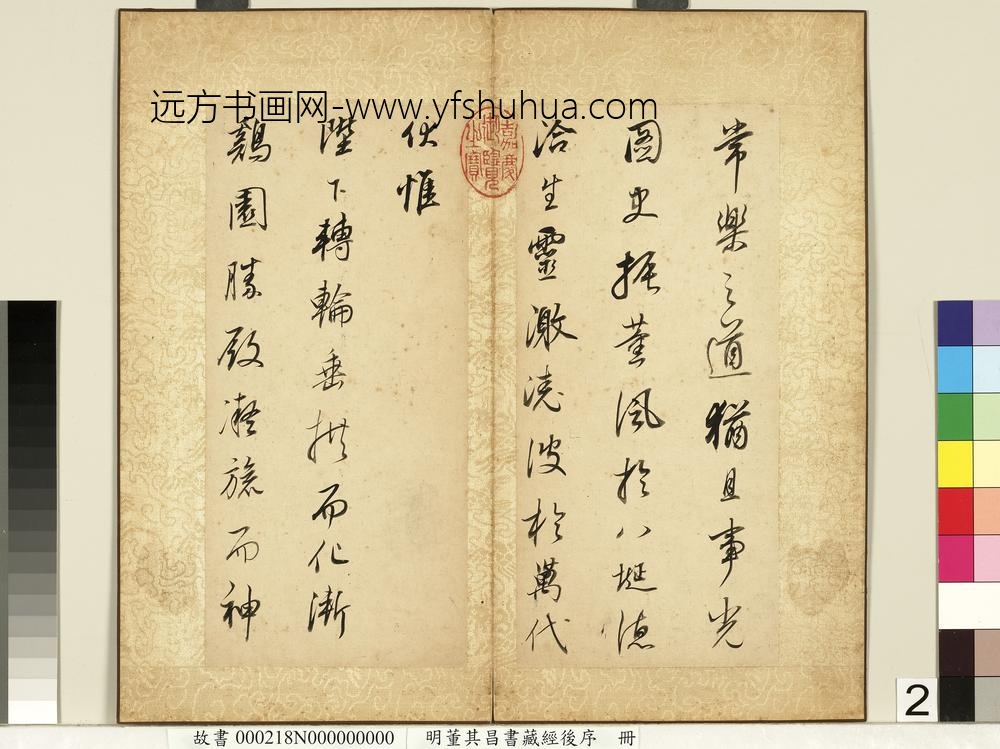 远方书画网-www.yfshuhua.com
常樂之道猶且事光
圖史振薰風於八埏德
洽生靈激澆波於萬代
伏惟
陛下轉輪垂拱而化漸
鷄園勝殿凝旒而神
嘉慶御覽之寶
2
故書 000218N000000000 明董其昌書藏經後序 冊